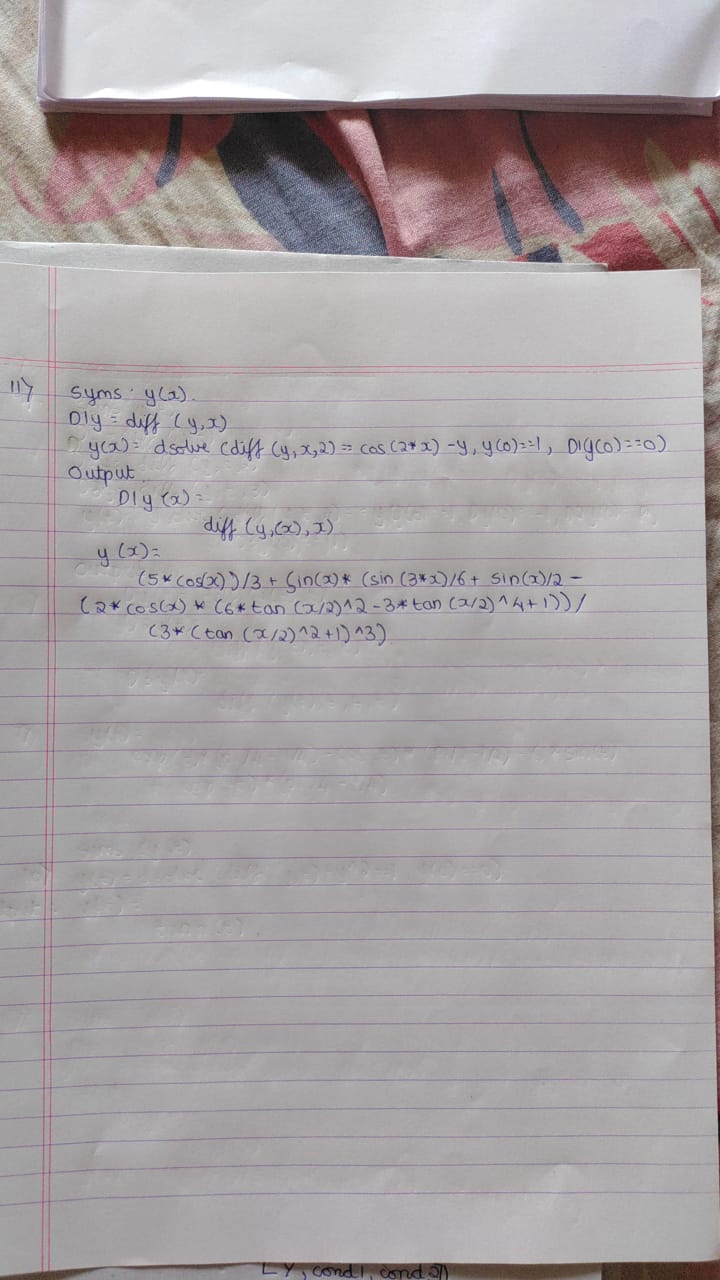 11) Syms y(x).
D1y = diff (y,x)
y(x) = dsolve (diff (y,x,2) == cos(2*x) -y, y(0)==1, D1y(0)==0)
Output
D1y(x) =
diff (y,(x),x)
y(x) =
(5*cos(x))/3 + Sin(x)* (sin(3*x)/6 + Sin(x)/2 -
(2*cos(x) * (6*tan (x/2)^2 -3*tan (x/2)^4+1))/
(3*(tan (x/2)^2+1)^3)
[Y, cond1, cond2])